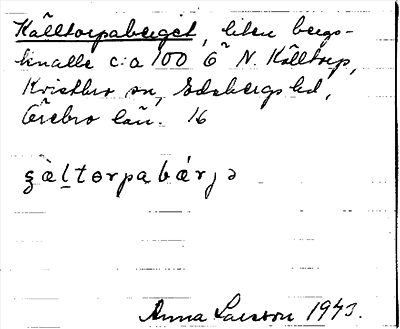 Källtorpaberget, liten bergs-
knalle c:a 100 m N. Källtorp,
Kvistbro sn, Edsbergs hd,
Örebro län. 16
ʂäl̲torpabärjə
Anna Larsson 1943.